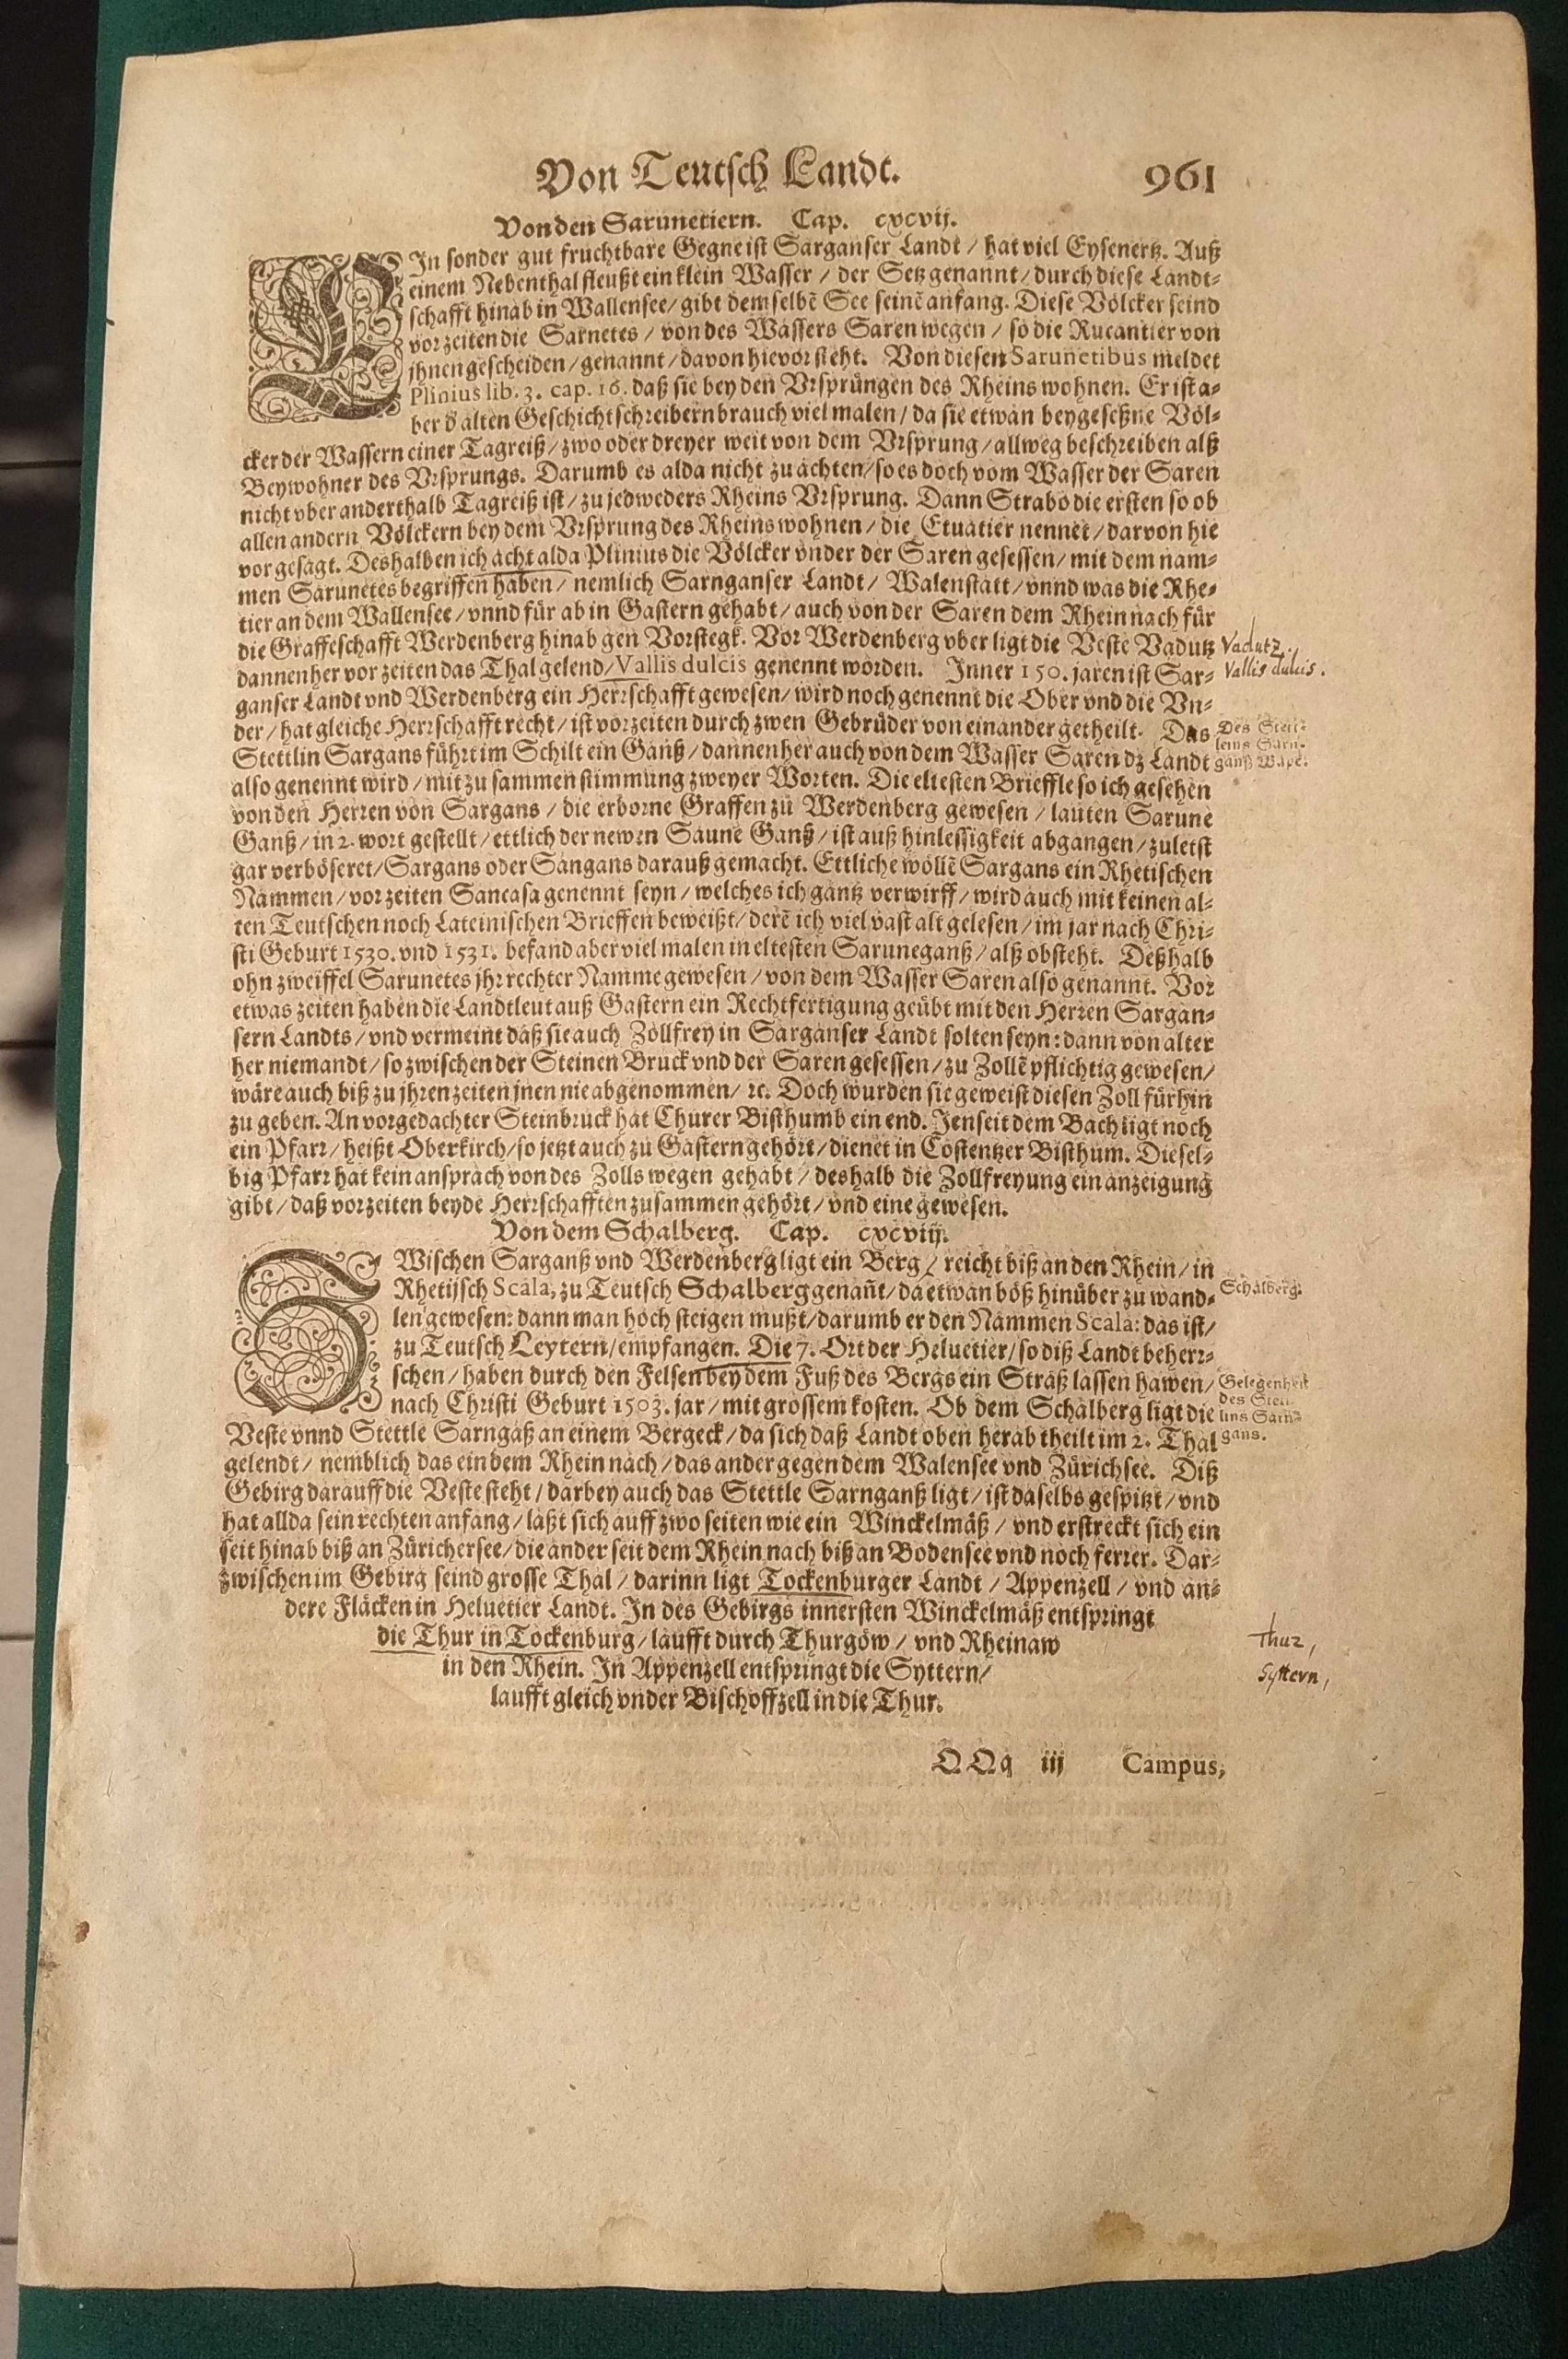 Von Teutsch Landt. 961
Von den Sarunetiern. Cap. cxcvij.
EIn sonder gut fruchtbare Gegne ist Sarganser Landt / hat viel Eysenertz. Auß
einem Nebenthal fleußt ein klein Wasser / der Setz genannt / durch diese Landt⸗
schafft hinab in Wallensee / gibt demselbẽ See seinẽ anfang. Diese Völcker seind
vor zeiten die Sarnetes / von des Wassers Saren wegen / so die Rucantier von
jhnen gescheiden / genannt / davon hievor steht. Von diesen Sarunetibus meldet
Plinius lib. 3. cap. 16. daß sie bey den Vrsprüngen des Rheins wohnen. Er ist a⸗
ber d' alten Geschichtschreibern brauch viel malen / da sie etwan beygeseßne Völ⸗
cker der Wassern einer Tagreiß / zwo oder dreyer weit von dem Vrsprung / allweg beschreiben alß
Beywohner des Vrsprungs. Darumb es alda nicht zu achten / so es doch vom Wasser der Saren
nicht vber anderthalb Tagreiß ist / zu jedweders Rheins Vrsprung. Dann Strabo die ersten so ob
allen andern Völckern bey dem Vrsprung des Rheins wohnen / die Etuatier nennet / darvon hie
vor gesagt. Deshalben ich acht alda Plinius die Völcker vnder der Saren gesessen / mit dem nam⸗
men Sarunetes begriffen haben / nemlich Sarnganser Landt / Walenstatt / vnnd was die Rhe⸗
tier an dem Wallensee / vnnd für ab in Gastern gehabt / auch von der Saren dem Rhein nach für
die Graffeschafft Werdenberg hinab gen Vorstegk. Vor Werdenberg vber ligt die Veste Vadutz
Vadutz.
dannenher vor zeiten das Thalgelend / Vallis dulcis genennt worden. Inner 150. jaren ist Sar⸗
Vallis dulcis.
ganser Landt vnd Werdenberg ein Herrschafft gewesen / wird noch genennt die Ober vnd die Vn⸗
der / hat gleiche Herrschafft recht / ist vor zeiten durch zwen Gebrüder von einander getheilt. Das
Des Stett⸗
leins Sarn⸗
gans Wapē.
Stettlin Sargans führt im Schilt ein Ganß / dannenher auch von dem Wasser Saren dz Landt
also genennt wird / mit zusammen stimmung zweyer Worten. Die eltesten Brieffle so ich gesehen
von den Herren von Sargans / die erborne Graffen zu Werdenberg gewesen / lauten Sarune
Ganß / in 2. wort gestellt / ettlich der newrn Saune Ganß / ist auß hinlessigkeit abgangen / zuletst
gar verböseret / Sargans oder Sangans darauß gemacht. Ettliche wöllẽ Sargans ein Rhetischen
Nammen / vor zeiten Sancasa genennt seyn / welches ich gantz verwirff / wird auch mit keinen al⸗
ten Teutschen noch Lateinischen Brieffen beweißt / derẽ ich viel vast alt gelesen / im jar nach Chri⸗
sti Geburt 1530. vnd 1531. befand aber viel malen in eltesten Saruneganß / alß obsteht. Deßhalb
ohn zweiffel Sarunetes jhr rechter Namme gewesen / von dem Wasser Saren also genannt. Vor
etwas zeiten haben die Landtleut auß Gastern ein Rechtfertigung geübt mit den Herren Sargan⸗
sern Landts / vnd vermeint daß sie auch Zollfrey in Sarganser Landt solten seyn: dann von alter
her niemandt / so zwischen der Steinen Bruck vnd der Saren gesessen / zu Zollẽ pflichtig gewesen /
wäre auch biß zu jhren zeiten jnen nie abgenommen / ꝛc. Doch wurden sie geweist diesen Zoll fürhin
zu geben. An vorgedachter Steinbruck hat Churer Bisthumb ein end. Jenseit dem Bach ligt noch
ein Pfarr / heißt Oberkirch / so jetzt auch zu Gastern gehört / dienet in Costentzer Bisthum. Diesel⸗
big Pfarr hat kein ansprach von des Zolls wegen gehabt / deshalb die Zollfreyung ein anzeigung
gibt / daß vorzeiten beyde Herrschafften zusammen gehört / vnd eine gewesen.
Von dem Schalberg. Cap. cxcviij.
ZWischen Sarganß vnd Werdenberg ligt ein Berg / reicht biß an den Rhein / in
Rhetijsch Scala, zu Teutsch Schalberg genañt / da etwan böß hinüber zu wand⸗
Schalberg.
len gewesen: dann man hoch steigen mußt / darumb er den Nammen Scala: das ist /
zu Teutsch Leytern / empfangen. Die 7. Ort der Heluetier / so diß Landt beherr⸗
schen / haben durch den Felsen bey dem Fuß des Bergs ein Straß lassen hawen /
nach Christi Geburt 1503. jar / mit grossem kosten. Ob dem Schalberg ligt die
Gelegenheit
des Stett⸗
lins Sarn⸗
gans.
Veste vnnd Stettle Sarngaß an einem Bergeck / da sich daß Landt oben herab theilt im 2. Thal
gelendt / nemblich das ein dem Rhein nach / das ander gegen dem Walensee vnd Zürichsee. Diß
Gebirg darauff die Veste steht / darbey auch das Stettle Sarnganß ligt / ist daselbs gespitzt / vnd
hat allda sein rechten anfang / laßt sich auff zwo seiten wie ein Winckelmäß / vnd erstreckt sich ein
seit hinab biß an Zürichersee / die ander seit dem Rhein nach biß an Bodensee vnd noch ferrer. Dar⸗
zwischen im Gebirg seind grosse Thal / darinn ligt Tockenburger Landt / Appenzell / vnd an⸗
dere Fläcken in Heluetier Landt. In des Gebirgs innersten Winckelmäß entspringt
die Thur in Tockenburg / laufft durch Thurgöw / vnd Rheinaw
Thur,
in den Rhein. In Appenzell entspringt die Syttern /
Syttern,
laufft gleich vnder Bischoffzell in die Thur.
QQq iij Campus,